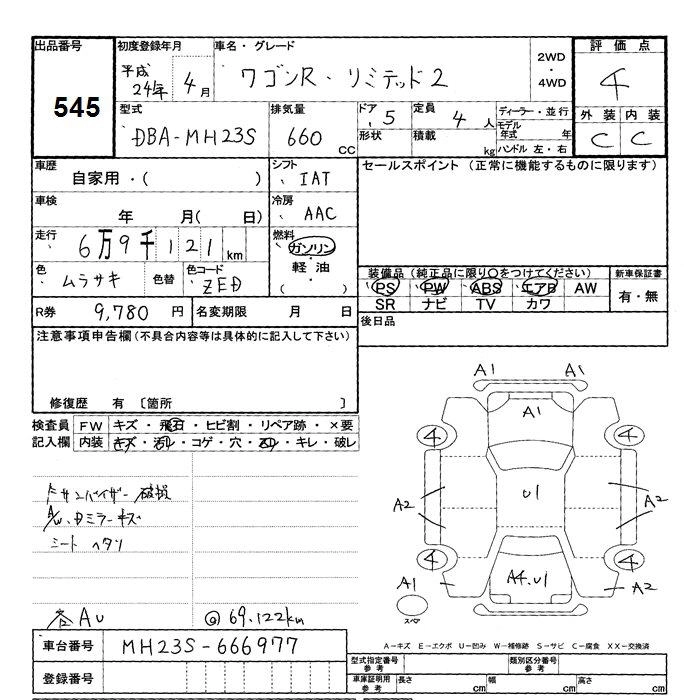 出品番号 初度登録年月 車名・グレード 2WD・4WD 評価点
545 平成24年 4月 ワゴンR・リミテッド2 4
型式 排気量 ドア 定員 ディーラー・並行 外装 内装
DBA-MH23S 660 CC 5 4人 モデル年式 年 C C
形状 積載 kg ハンドル 左・右
車歴 シフト セールスポイント (正常に機能するものに限ります)
自家用・( ) IAT
車検 冷房
年 月( 日) AAC
走行 燃料
6万9千121km ガソリン・軽油・( )
色 色替 色コード 装備品(純正品に限り○をつけてください) 新車保証書
ムラサキ ZED PS PW ABS エアB AW 有・無
SR ナビ TV カワ
R券 9,780円 名変期限 月 日 後日品
注意事項申告欄(不具合内容等は具体的に記入して下さい)
修復歴 有 〔箇所 〕
検査員記入欄 FW キズ・飛石・ヒビ割・リペア跡・×要
内装 キズ・汚レ・コゲ・穴・凹・キレ・破レ
サンバイザー 破損
A/W、Dミラーキズ
シートヘタリ
各AU @69.122km
A1 A1
A1
4 4
A2 U1 A2
4 4
A1 A4.U1 A2
スペア
A-キズ E-エクボ U-凹み W-補修跡 S-サビ C-腐食 XX-交換済
車台番号 MH23S-666977 型式指定番号 参考 類別区分番号 参考
登録番号 車庫証明用 参考 長さ cm 幅 cm 高さ cm